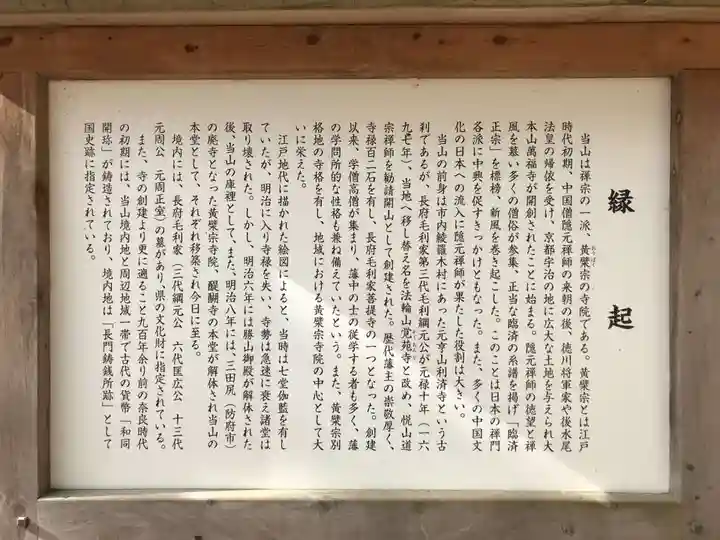 縁起
当山は禅宗の一派、黄檗宗の寺院である。黄檗宗とは江戸
時代初期、中国僧隠元禅師の来朝の後、徳川将軍家や後水尾
法皇の帰依を受け、京都宇治の地に広大な土地を与えられ大
本山萬福寺が開創されたことに始まる。隠元禅師の徳望と禅
風を慕い多くの僧俗が参集、正当な臨済の系譜を掲げ「臨済
正宗」を標榜、新風を巻き起こした。このことは日本の禅門
各派に中興を促すきっかけともなった。また、多くの中国文
化の日本への流入に隠元禅師が果たした役割は大きい。
当山の前身は市内綾羅木村にあった元亨山利済寺という古
刹であるが、長府毛利家第三代毛利綱元公が元禄十年(一六
九七年)、当地へ移し替え名を法輪山覚苑寺と改め、悦山道
宗禅師を勧請開山として創建された。歴代藩主の崇敬厚く、
寺禄百二石を有し、長府毛利家菩提寺の一つとなった。創建
以来、学僧高僧が集まり、藩中の士の従学する者も多く、藩
の学問所的な性格も兼ね備えていたという。また、黄檗宗別
格地の寺格を有し、地域における黄檗宗寺院の中心として大
いに栄えた。
江戸地代に描かれた絵図によると、当時は七堂伽藍を有し
ていたが、明治に入り寺禄を失い、寺勢は急速に衰え諸堂は
取り壊された。しかし、明治六年には勝山御殿が解体された
後、当山の庫裡として、また、明治八年には、三田尻(防府市)
の廃寺となった黄檗宗寺院、醍醐寺の本堂が解体され当山の
本堂として、それぞれ移築され今日に至る。
境内には、長府毛利家(三代綱元公 六代匡広公 十三代
元周公 元周正室)の墓があり、県の文化財に指定されている。
また、寺の創建より更に遡ること九百年余り前の奈良時代
の初期には、当山境内地と周辺地域一帯で古代の貨幣「和同
開珎」が鋳造されており、境内地は「長門鋳銭所跡」として
国史跡に指定されている。